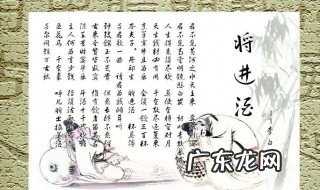 将进酒
李白
君不见黄河之水天上来
君不见高堂明镜悲白发
人生得意须尽欢 莫使金樽空对月
天生我材必有用 千金散尽还复来
烹羊宰牛且为乐 会须一饮三百杯
岑夫子 丹丘生 将进酒 杯莫停
与君歌一曲 请君为我倾耳听
钟鼓馔玉不足贵 但愿长醉不愿醒
古来圣贤皆寂寞 惟有饮者留其名
陈王昔时宴平乐 斗酒十千恣欢谑
主人何为言少钱
五花马 千金裘 呼儿将出换美酒
与尔同销万古愁
广东龙网